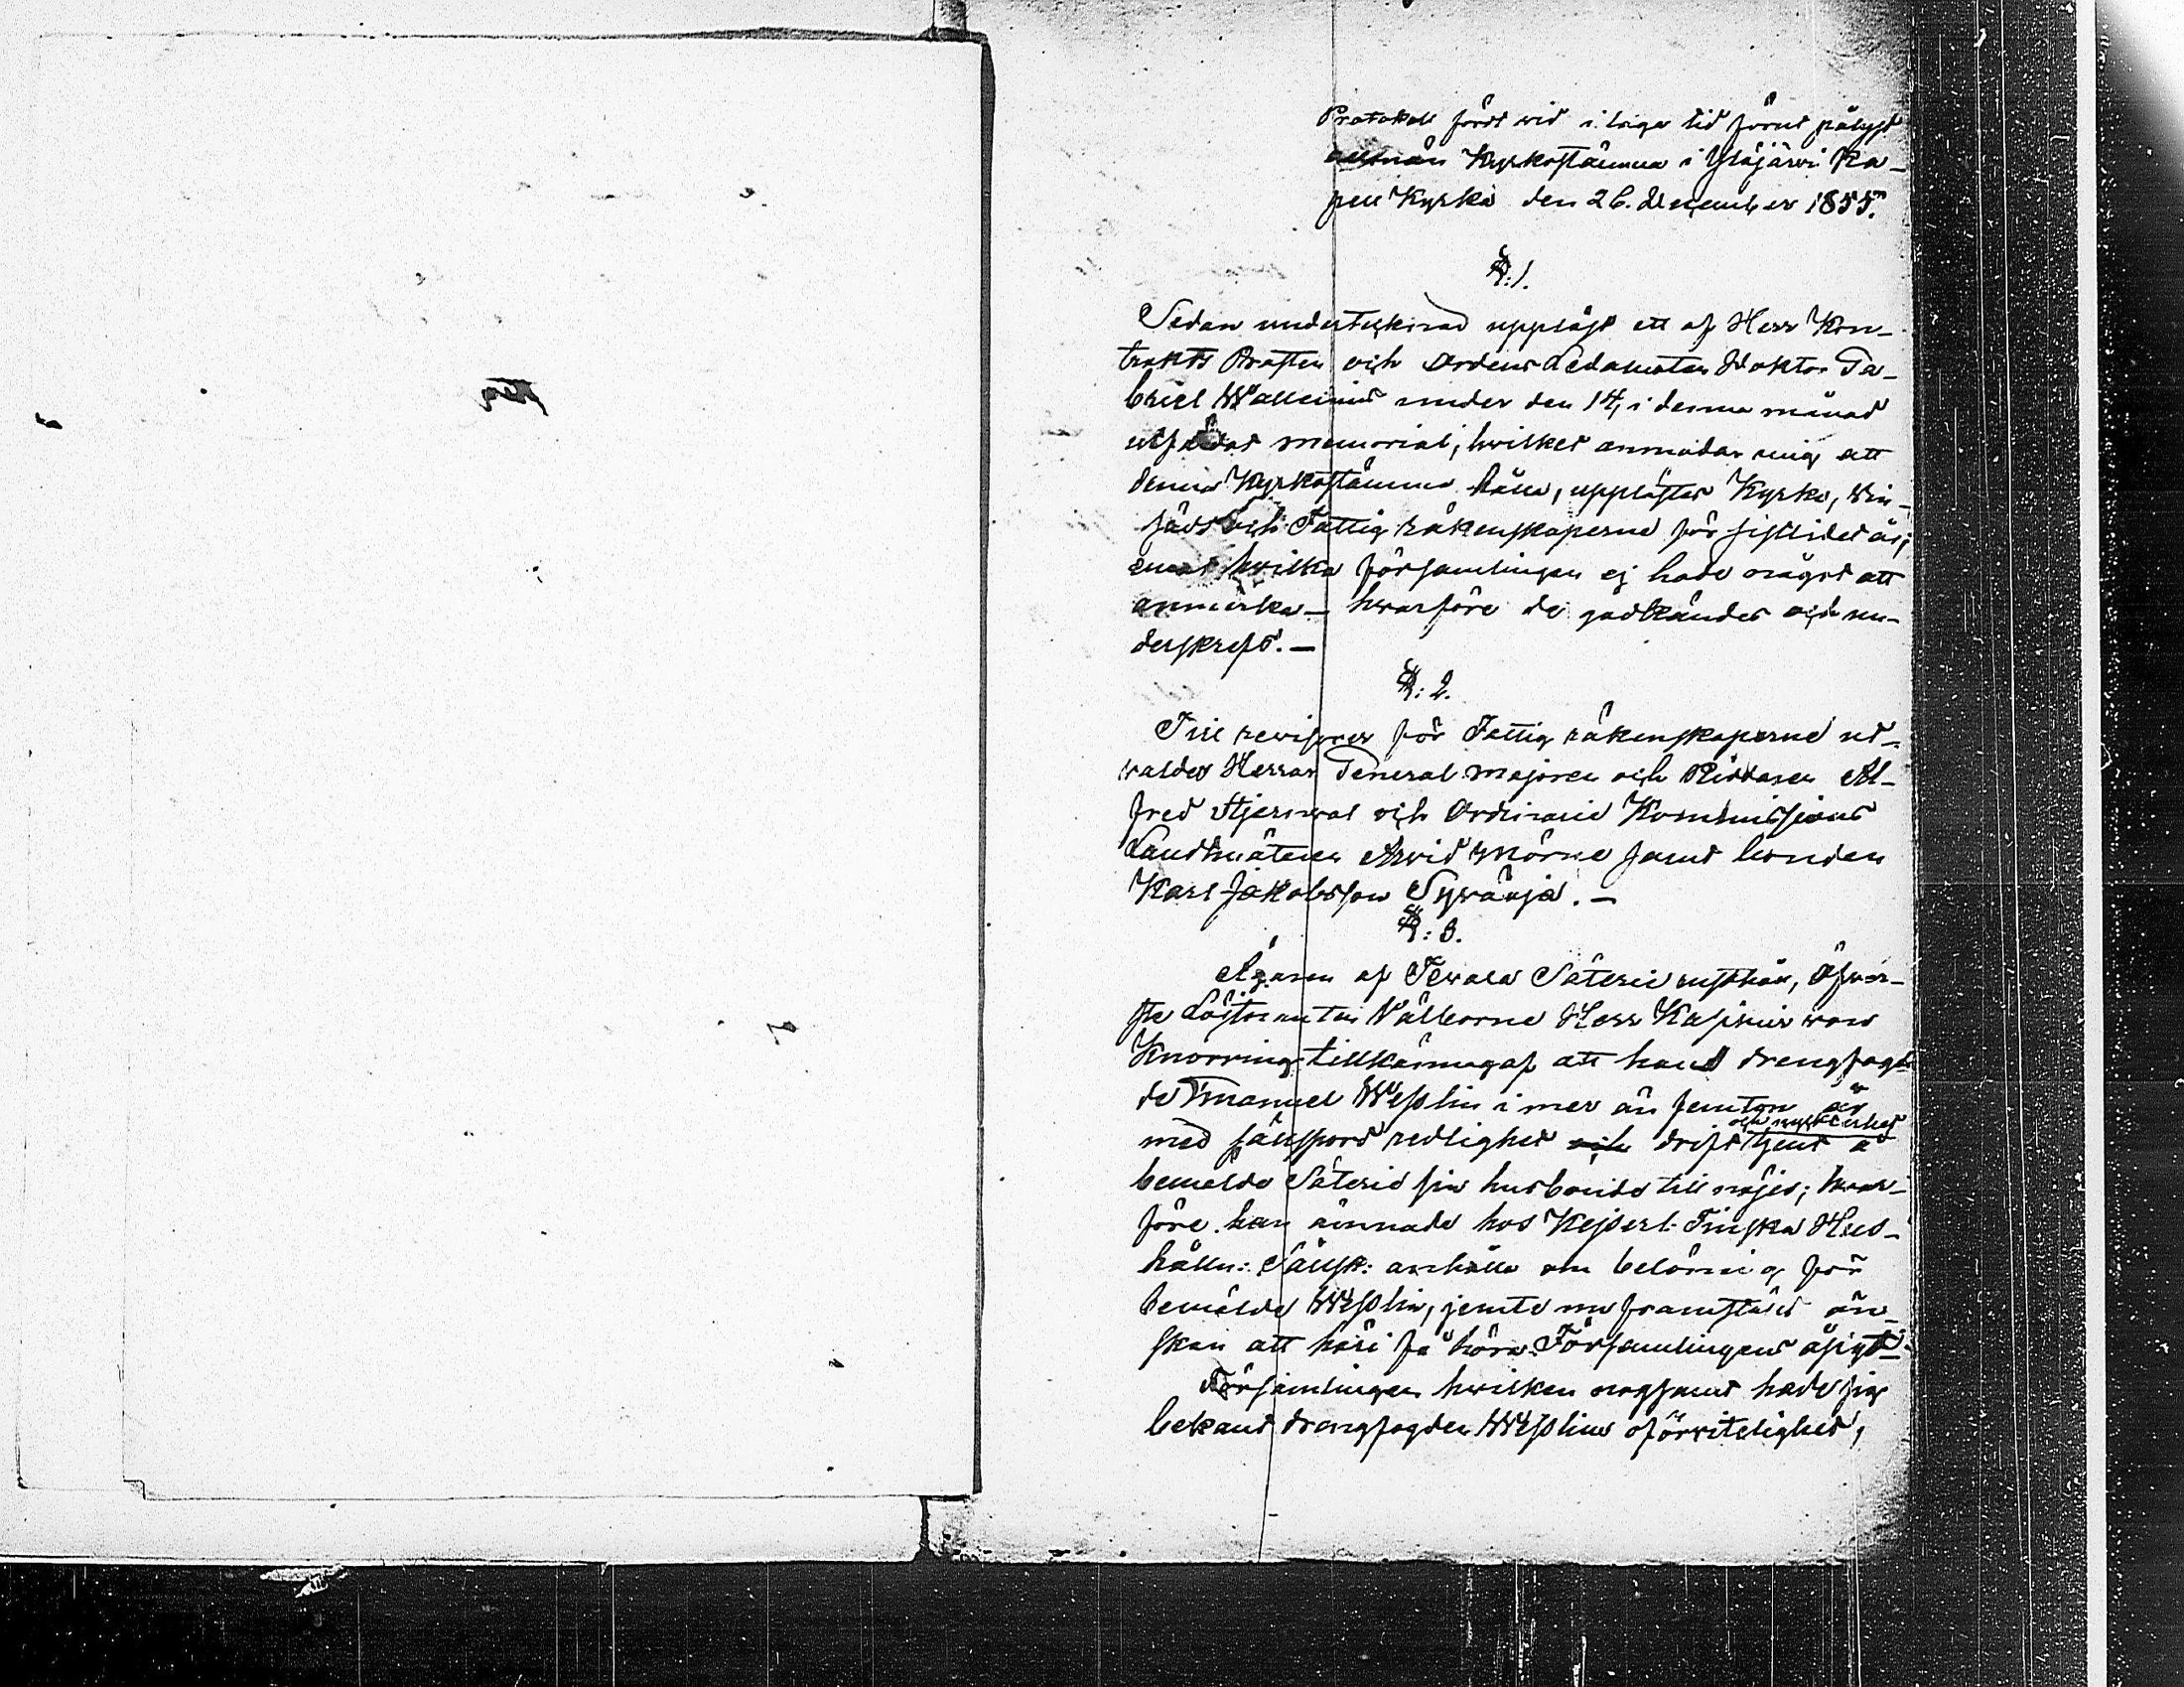 Protokoll fördt wid i laga tid förut pålyst
allmän Kyrkostämma i Ylöjärwi Ka-
pell Kyrka den 26. December 1855.
§:1.
Sedan undertecknad uppläst ett af Herr Kon-
trakts Prosten och Ordens Ledamoten Doktor Ga-
briel Wallenius under den 14, i denna månad
utfärdat memorial, hwilket anmodar mig att
denna Kyrkostämma hålla, upplästes Kyrko,
och Fattig räkenskaperne för sistlidet år,
emot hwilka församlingen ej hade något att
anmärka — hwarföre de godkändes och un-
derskrefs. —
§:2.
Till revisorer för Fattig räkenskaperne ut-
waldes Herrar General majoren och Riddaren Al-
fred Stjernwal och Ordinarie Kommissions
Landtmätaren Arvid Mörne samt bonden
Karl Jakobsson Sywänjä. —
§:3.
Ägaren af Tewala Säteri rusthåll, Öfwer-
ste Löjtnanten Välborne Herr Kasimir von
Knorring tillkännagaf att hans drengfogd-
de Emanuel Wesslin i mer än femton år
med sällspord redlighet och drift och nykterhet tjent å
bemälde Säterie sin husbonde till nöjes; hwar-
före han ämnade hos Kejserl. Finska Hus-
hålln: Sällsk: anhålla om belöning för
bemälde Wesslin, jemte nu framstäld ön-
skan att häri få höra Församlingens åsigt.-
Församlingen hwilken nogsamt hade sig
bekant drengfogden Wesslins oförwitelighet,